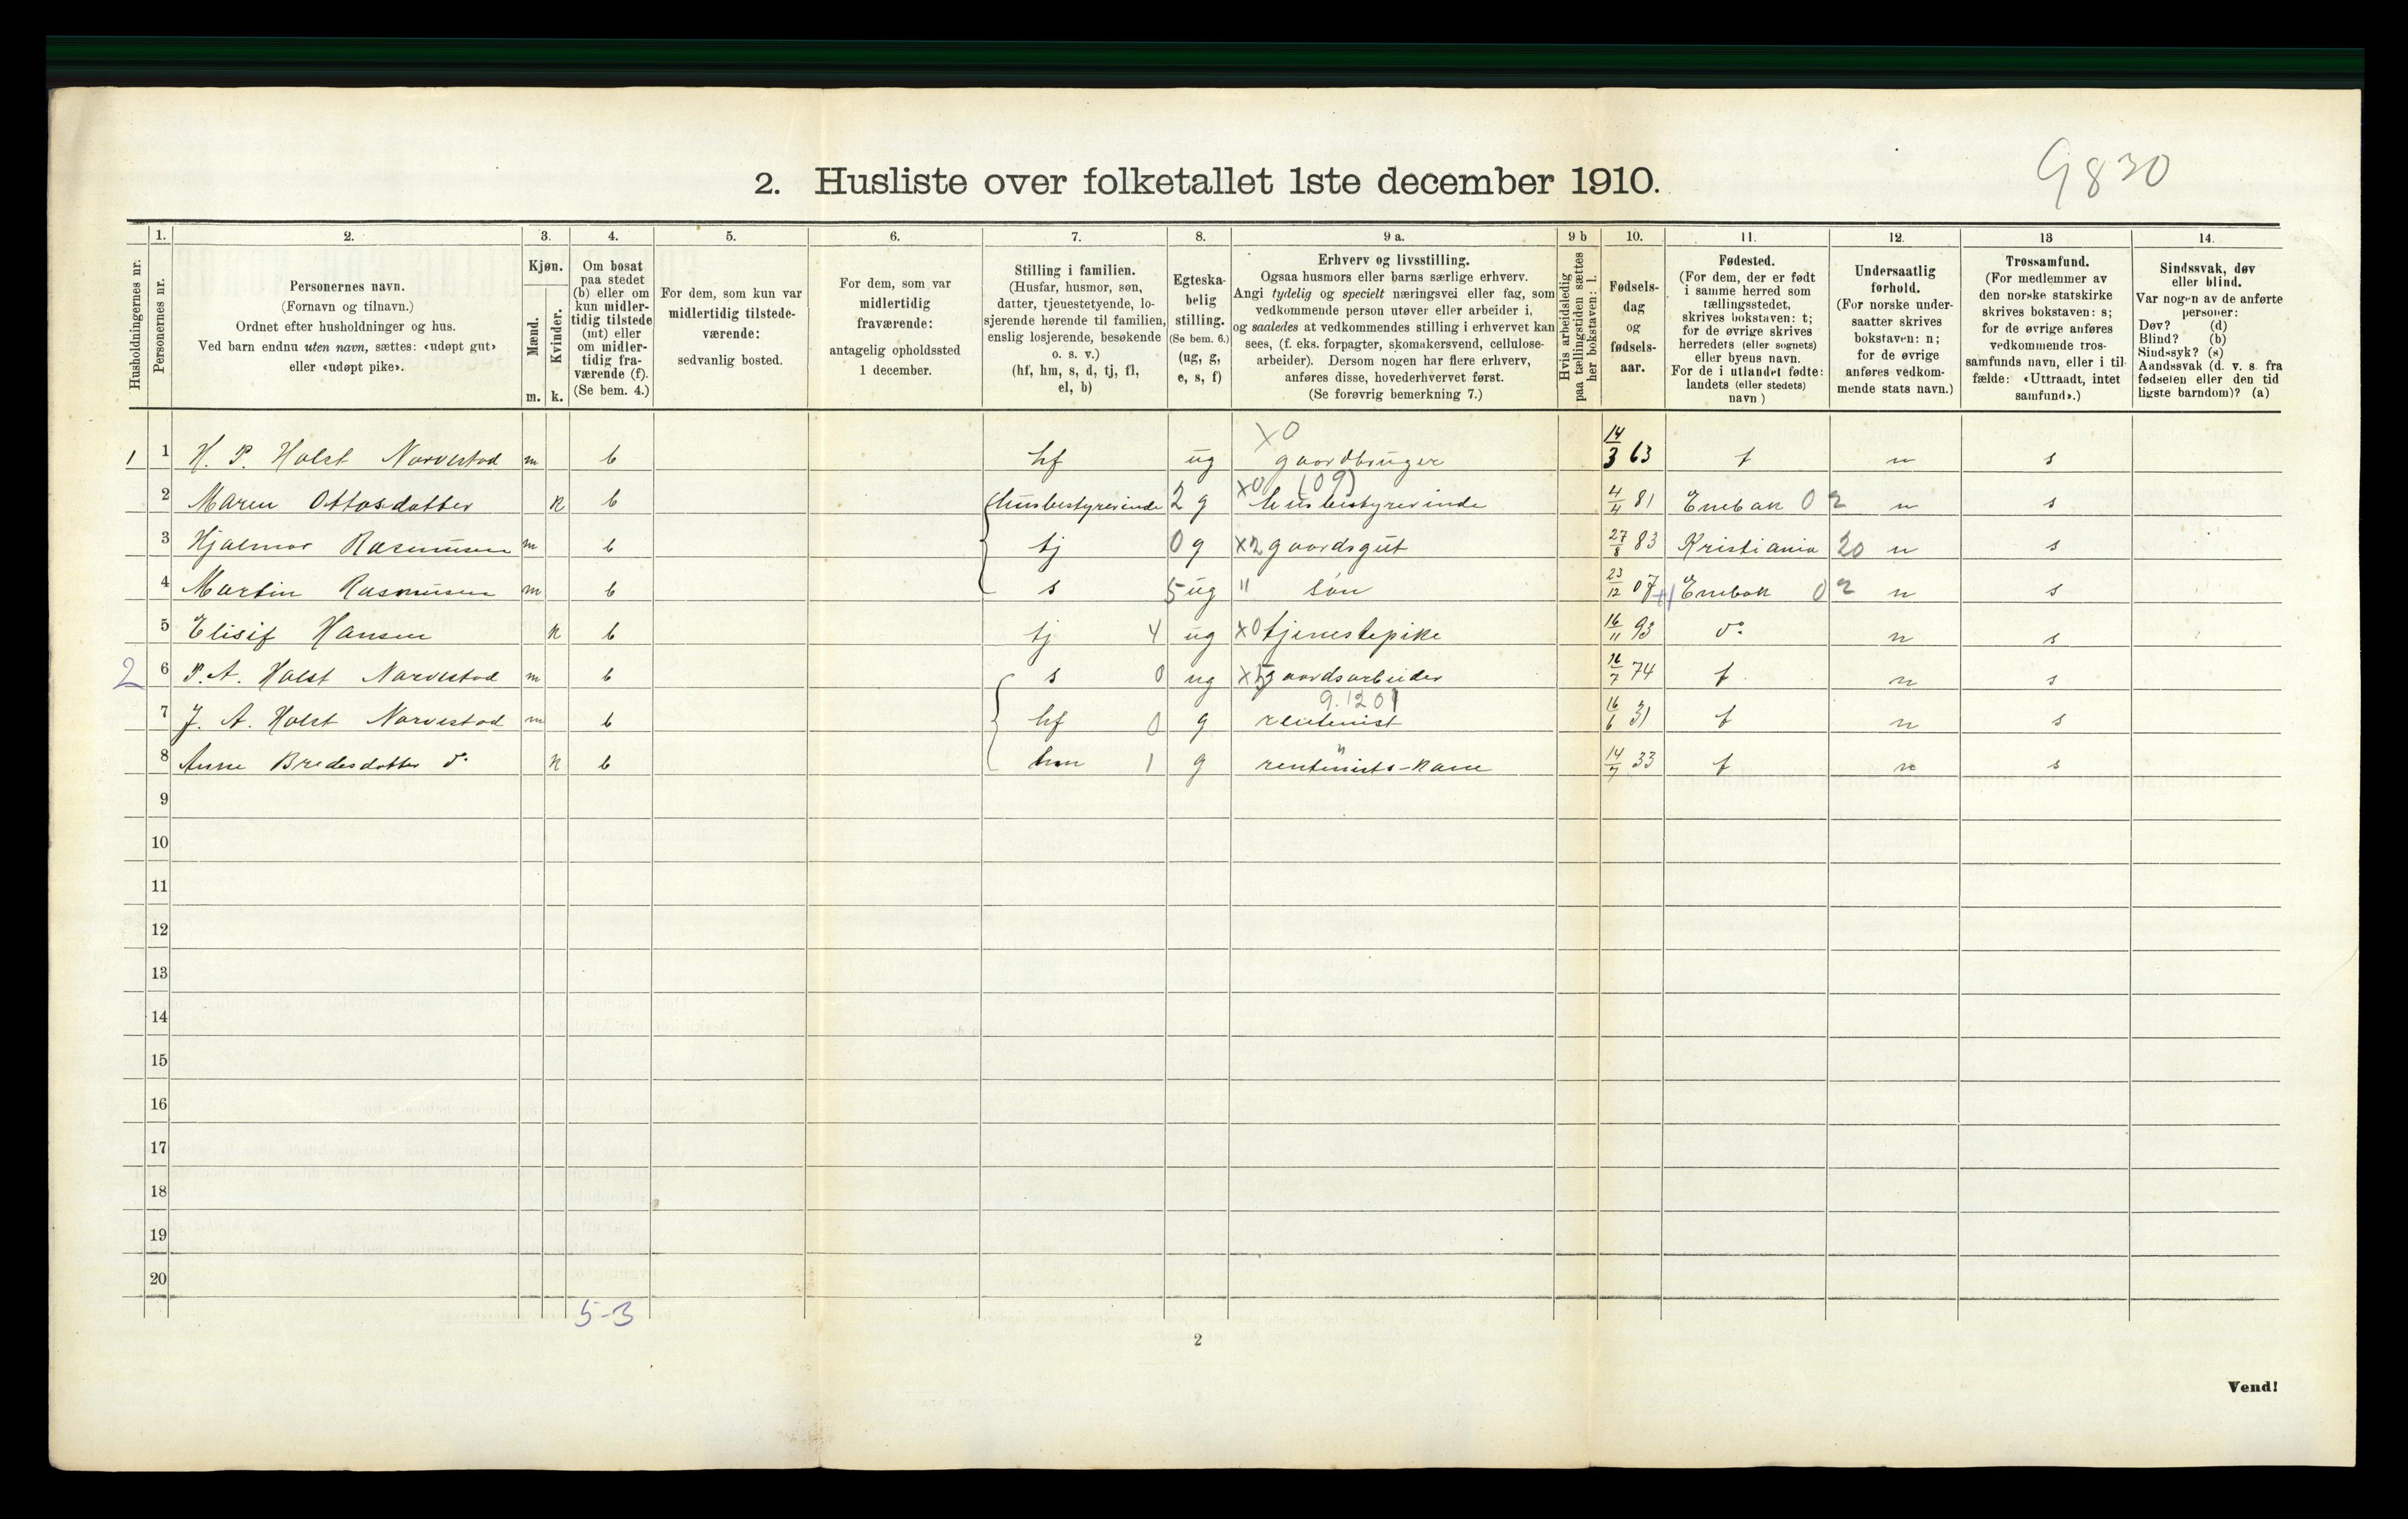 9830
2. Husliste over folketallet 1ste december 1910.
Husholdningernes nr.
1.
Personernes nr.
2.
Personernes navn.
(Fornavn og tilnavn.)
Ordnet efter husholdninger og hus.
Ved barn endnu uten navn, sættes: «udøpt gut»
eller «udøpt pike».
3.
Kjøn.
Mænd.
Kvinder.
m. k.
4.
Om bosat
paa stedet
(b) eller om
kun midler-
tidig tilstede
(mt) eller
om midler-
tidig fra-
værende (f).
(Se bem. 4.)
5.
For dem, som kun var
midlertidig tilstede-
værende:
sedvanlig bosted.
6.
For dem, som var
midlertidig
fraværende:
antagelig opholdssted
1 december.
7.
Stilling i familien.
(Husfar, husmor, søn,
datter, tjenestetyende, lo-
sjerende hørende til familien,
enslig losjerende, besøkende
o. s. v.)
(hf, hm, s, d, tj, fl,
el, b)
8.
Egteska-
belig
stilling.
(Se bem. 6.)
(ug, g,
e, s, f)
9 a.
Erhverv og livsstilling.
Ogsaa husmors eller barns særlige erhverv.
Angi tydelig og specielt næringsvei eller fag, som
vedkommende person utøver eller arbeider i,
og saaledes at vedkommendes stilling i erhvervet kan
sees, (f. eks. forpagter, skomakersvend, cellulose-
arbeider). Dersom nogen har flere erhverv,
anføres disse, hovederhvervet først.
(Se forøvrig bemerkning 7.)
9 b
Hvis arbeidsledig
paa tællingstiden sættes
her bokstaven: l.
10.
Fødsels-
dag
og
fødsels-
aar.
11.
Fødested.
(For dem, der er født
i samme herred som
tællingsstedet,
skrives bokstaven: t;
for de øvrige skrives
herredets (eller sognets)
eller byens navn.
For de i utlandet fødte:
landets (eller stedets)
navn )
12.
Undersaatlig
forhold.
(For norske under-
saatter skrives
bokstaven: n;
for de øvrige
anføres vedkom-
mende stats navn.)
13
Trossamfund.
(For medlemmer av
den norske statskirke
skrives bokstaven: s;
for de øvrige anføres
vedkommende tros-
samfunds navn, eller i til-
fælde: «Uttraadt, intet
samfund».)
14.
Sindssvak, døv
eller blind.
Var nogen av de anførte
personer:
Døv? (d)
Blind? (b)
Sindssyk? (s)
Aandssvak (d. v. s. fra
fødselen eller den tid
ligste barndom)? (a)
1 1 H. P. Holst Narvestad m b hf ug X0 gaardbruger 14/3 63 t n s
2 Maren Ottosdatter k b husbestyrerinde 2 g X0 (09) husbestyrerinde 4/4 81 Enebak 02 n s
3 Hjalmar Rasmusen m b tj 0 g X2 gaardsgut 27/8 83 Kristiania 20 n s
4 Martin Rasmusen m b s 5 ug " søn 23/12 07 Enebak 02 n s
5 Elisif Hansen k b tj 4 ug X0 tjenestepike 16/11 93 do n s
2 6 P. A. Holst Narvestad m b s 0 ug gaardsarbeider 16/7 74 t n s
7 J. A. Holst Narvestad m b hf 0 g 9.1201 rentenist 16/6 31 t n s
8 Anne Bredesdatter do k b hm 1 g " rentenists-kone 14/7 33 t n s
9
10
11
12
13
14
15
16
17
18
19
20
5-3
2
Vend!